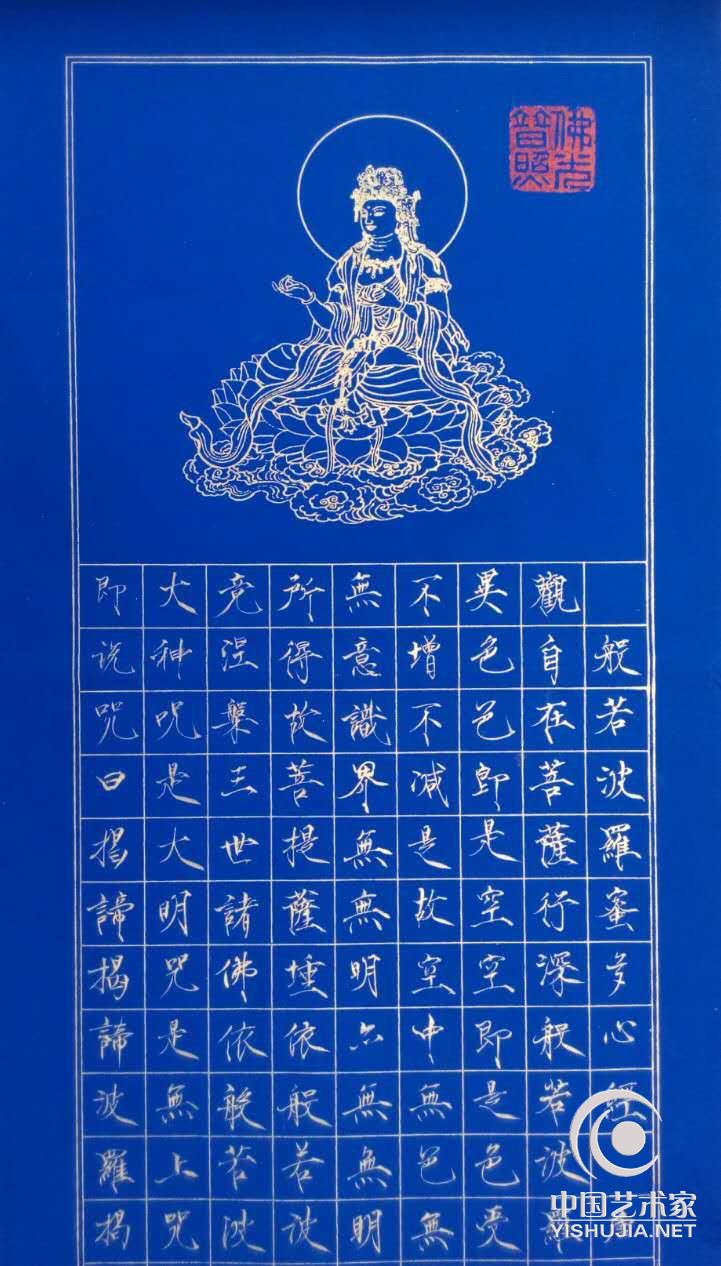 佛光
普照
般若波羅蜜多心經
觀自在菩薩行深般若波羅
異色色即是空空即是色受
不增不减是故空中無色無
無意識界無無明亦無無明
所得故菩提薩埵依般若波
竟涅槃三世諸佛依般若波
大神咒是大明咒是無上咒
即說咒曰揭諦揭諦波羅揭
中国艺术家
YISHUJIA.NET